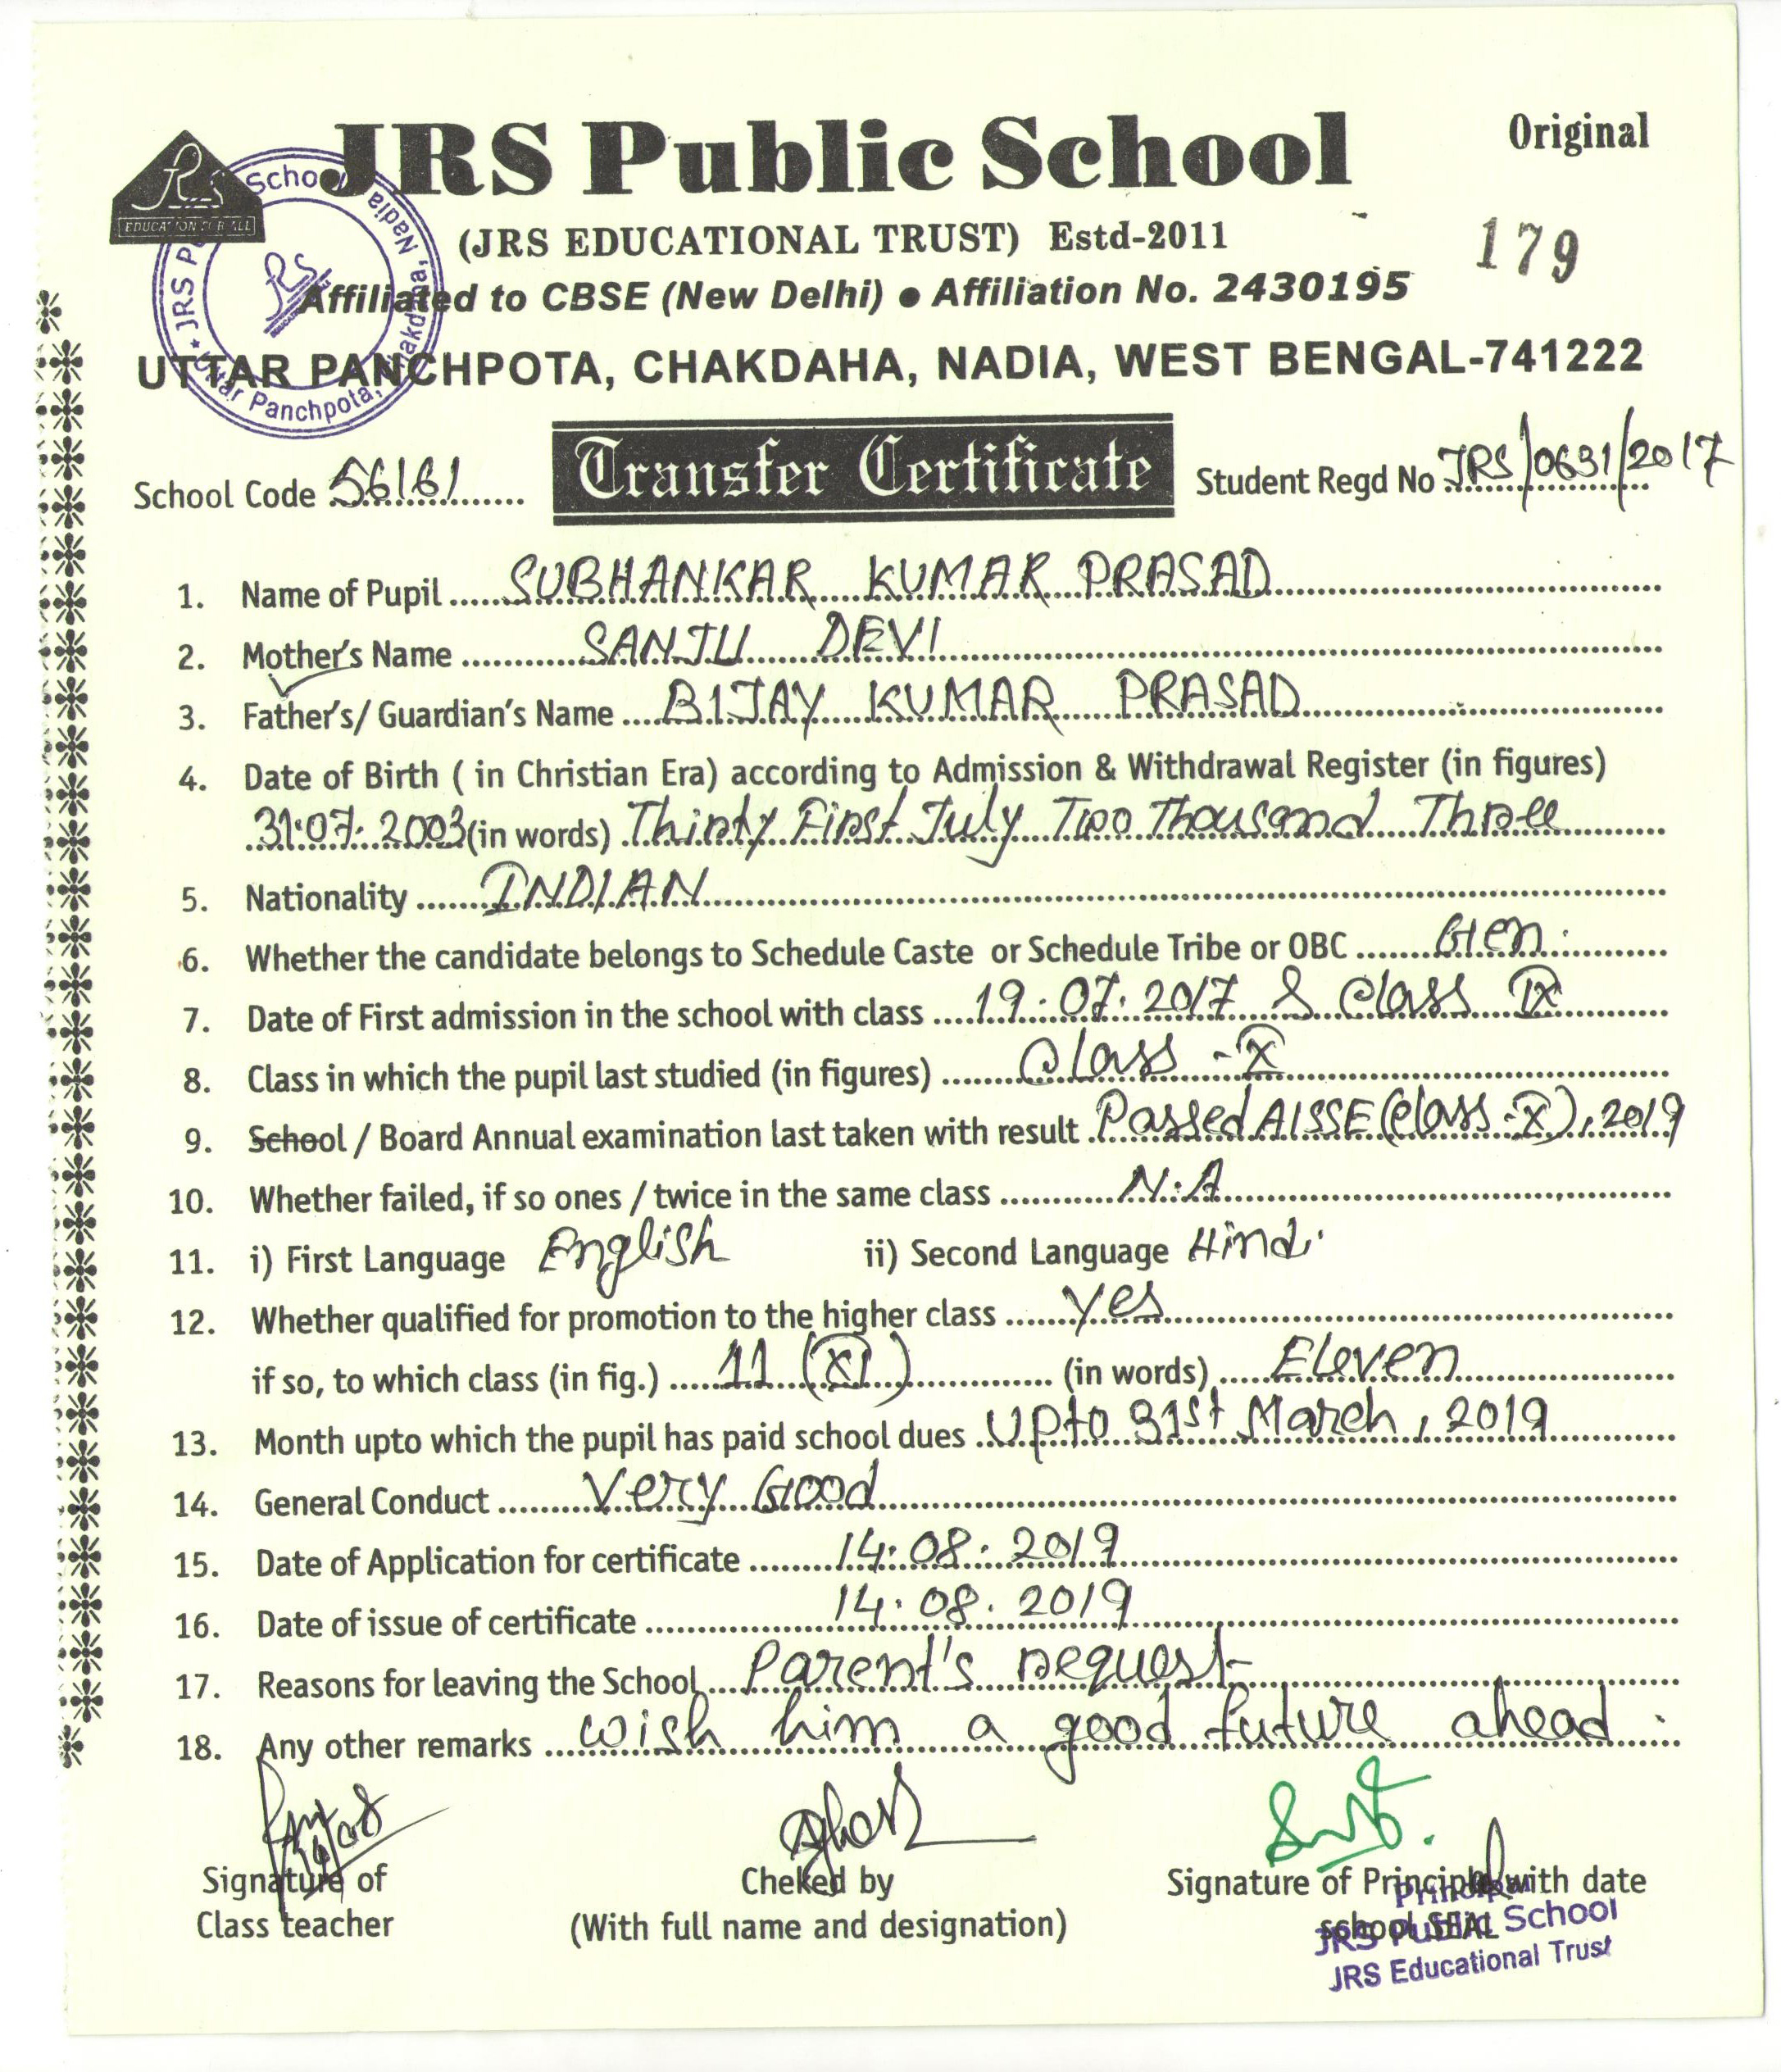 JRS Public School
Original
JRS
EDUCATION FOR ALL
JRS Public School
Uttar Panchpota, Chakdaha, Nadia
(JRS EDUCATIONAL TRUST) Estd-2011
179
Affiliated to CBSE (New Delhi) ● Affiliation No. 2430195
UTTAR PANCHPOTA, CHAKDAHA, NADIA, WEST BENGAL-741222
School Code 56161 Transfer Certificate Student Regd No JRS/0631/2017
1. Name of Pupil SUBHANKAR KUMAR PRASAD
2. Mother's Name SANJU DEVI
3. Father's/ Guardian's Name BIJAY KUMAR PRASAD
4. Date of Birth ( in Christian Era) according to Admission & Withdrawal Register (in figures)
31.07.2003 (in words) Thirty First July Two Thousand Three
5. Nationality INDIAN
6. Whether the candidate belongs to Schedule Caste or Schedule Tribe or OBC Gen.
7. Date of First admission in the school with class 19.07.2017 & Class IX
8. Class in which the pupil last studied (in figures) Class - X
9. School / Board Annual examination last taken with result Passed AISSE (Class-X), 2019
10. Whether failed, if so ones / twice in the same class N.A
11. i) First Language English ii) Second Language Hindi
12. Whether qualified for promotion to the higher class yes
if so, to which class (in fig.) 11 (XI) (in words) Eleven
13. Month upto which the pupil has paid school dues Upto 31st March, 2019
14. General Conduct Very Good
15. Date of Application for certificate 14.08.2019
16. Date of issue of certificate 14.08.2019
17. Reasons for leaving the School Parent's request
18. Any other remarks wish him a good future ahead.
Signature of Cheked by Signature of Principle with date
Class teacher (With full name and designation) school SEAL
Principal
JRS Public School
JRS Educational Trust